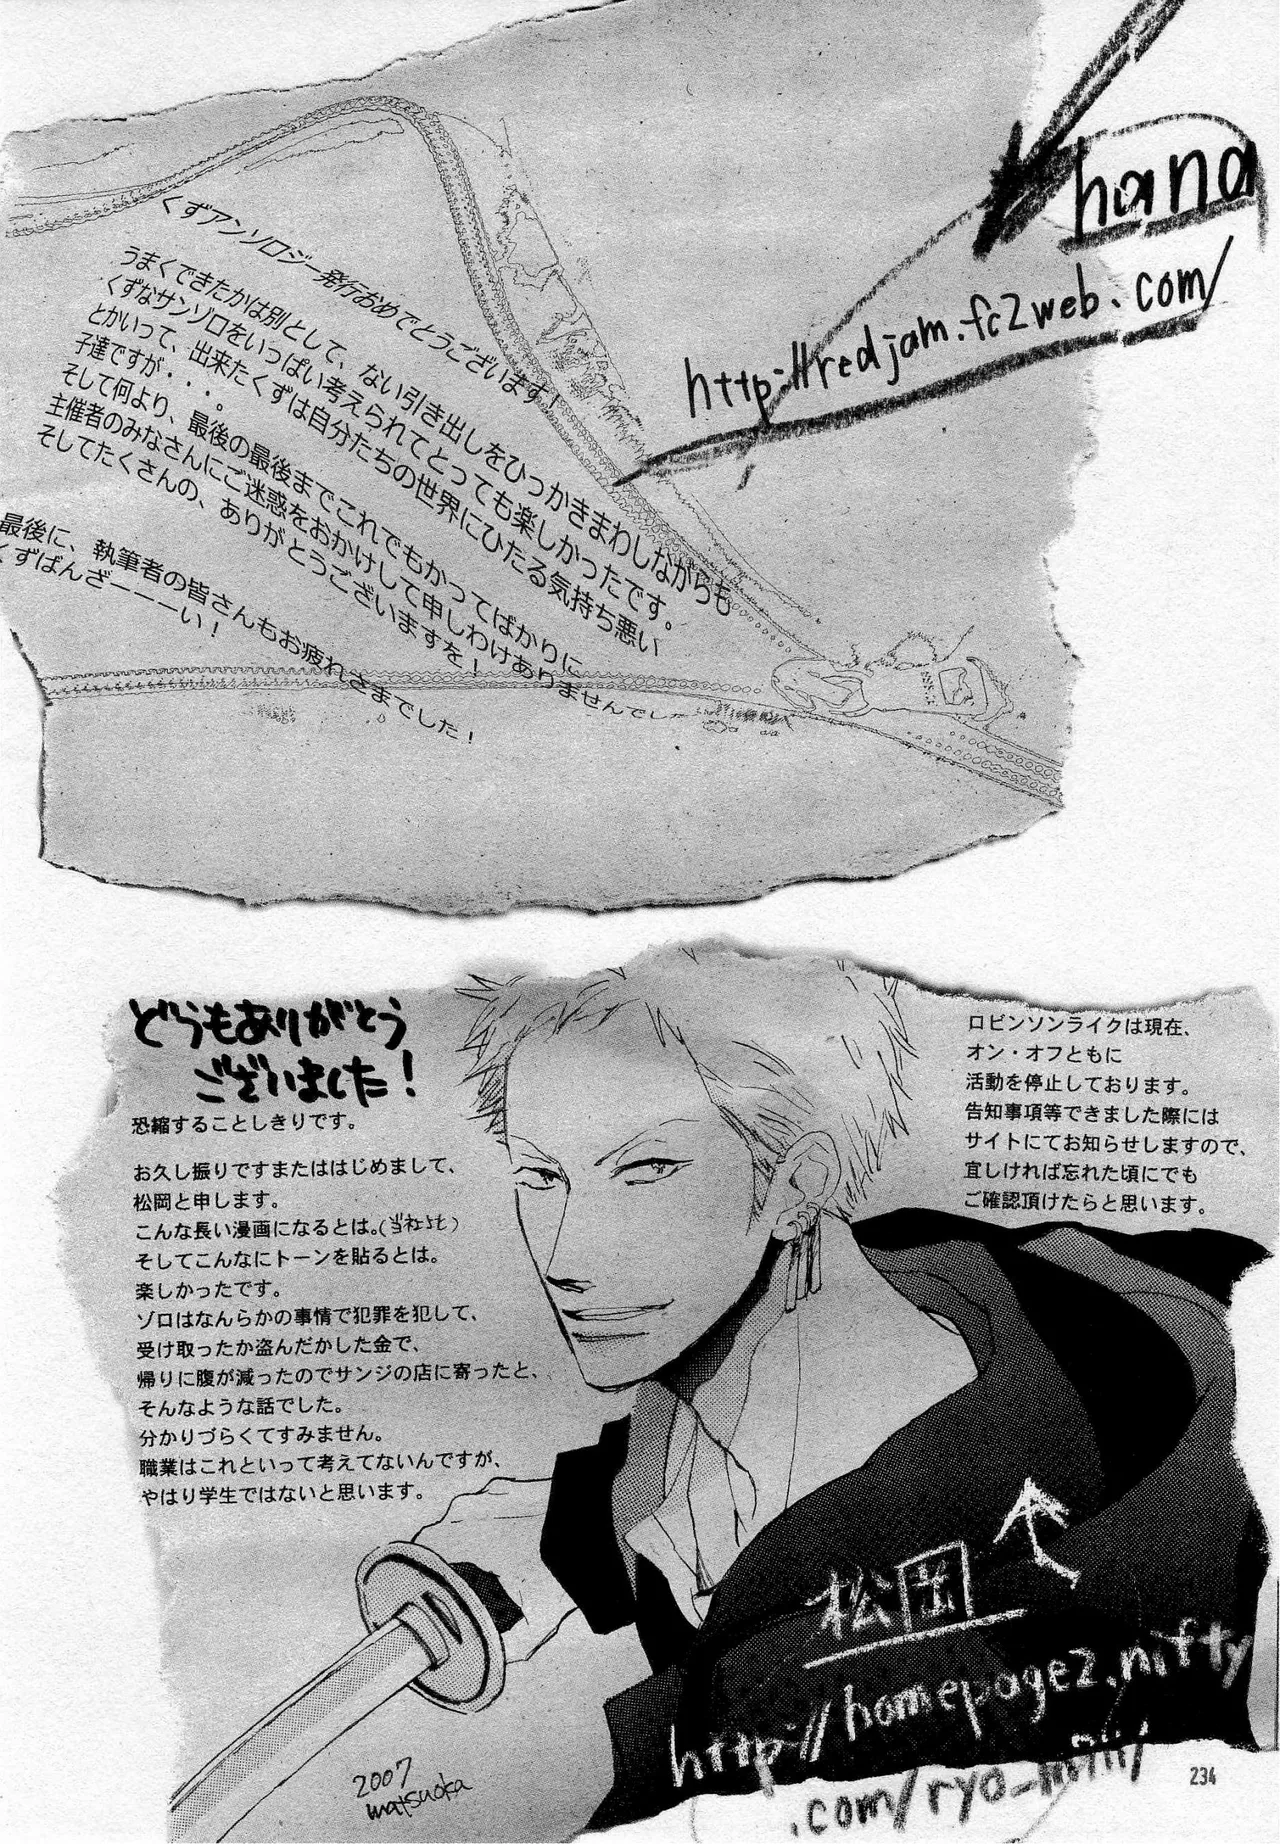 hana
http://redjam.fc2web.com/
くずアンソロジー発行おめでとうございます！
うまくできたかは別として、ない引き出しをひっかきまわしながらも
くずなサンゾロをいっぱい考えられてとっても楽しかったです。
とかいって、出来たくずは自分たちの世界にひたる気持ち悪い
子達ですが・・・。
そして何より、最後の最後までこれでもかってばかりに
主催者のみなさんにご迷惑をおかけして申しわけありませんでした
そしてたくさんの、ありがとうございますを！
最後に、執筆者の皆さんもお疲れさまでした！
くずばんざーーーい！
どうもありがとう
ございました！
恐縮することしきりです。
お久し振りですまたははじめまして、
松岡と申します。
こんな長い漫画になるとは。(当社比)
そしてこんなにトーンを貼るとは。
楽しかったです。
ゾロはなんらかの事情で犯罪を犯して、
受け取ったか盗んだかした金で、
帰りに腹が減ったのでサンジの店に寄ったと、
そんなような話でした。
分かりづらくてすみません。
職業はこれといって考えてないんですが、
やはり学生ではないと思います。
ロビンソンライクは現在、
オン・オフともに
活動を停止しております。
告知事項等できました際には
サイトにてお知らせしますので、
宜しければ忘れた頃にでも
ご確認頂けたらと思います。
松岡
http://homepage2.nifty
.com/
2007
matsuoka
234